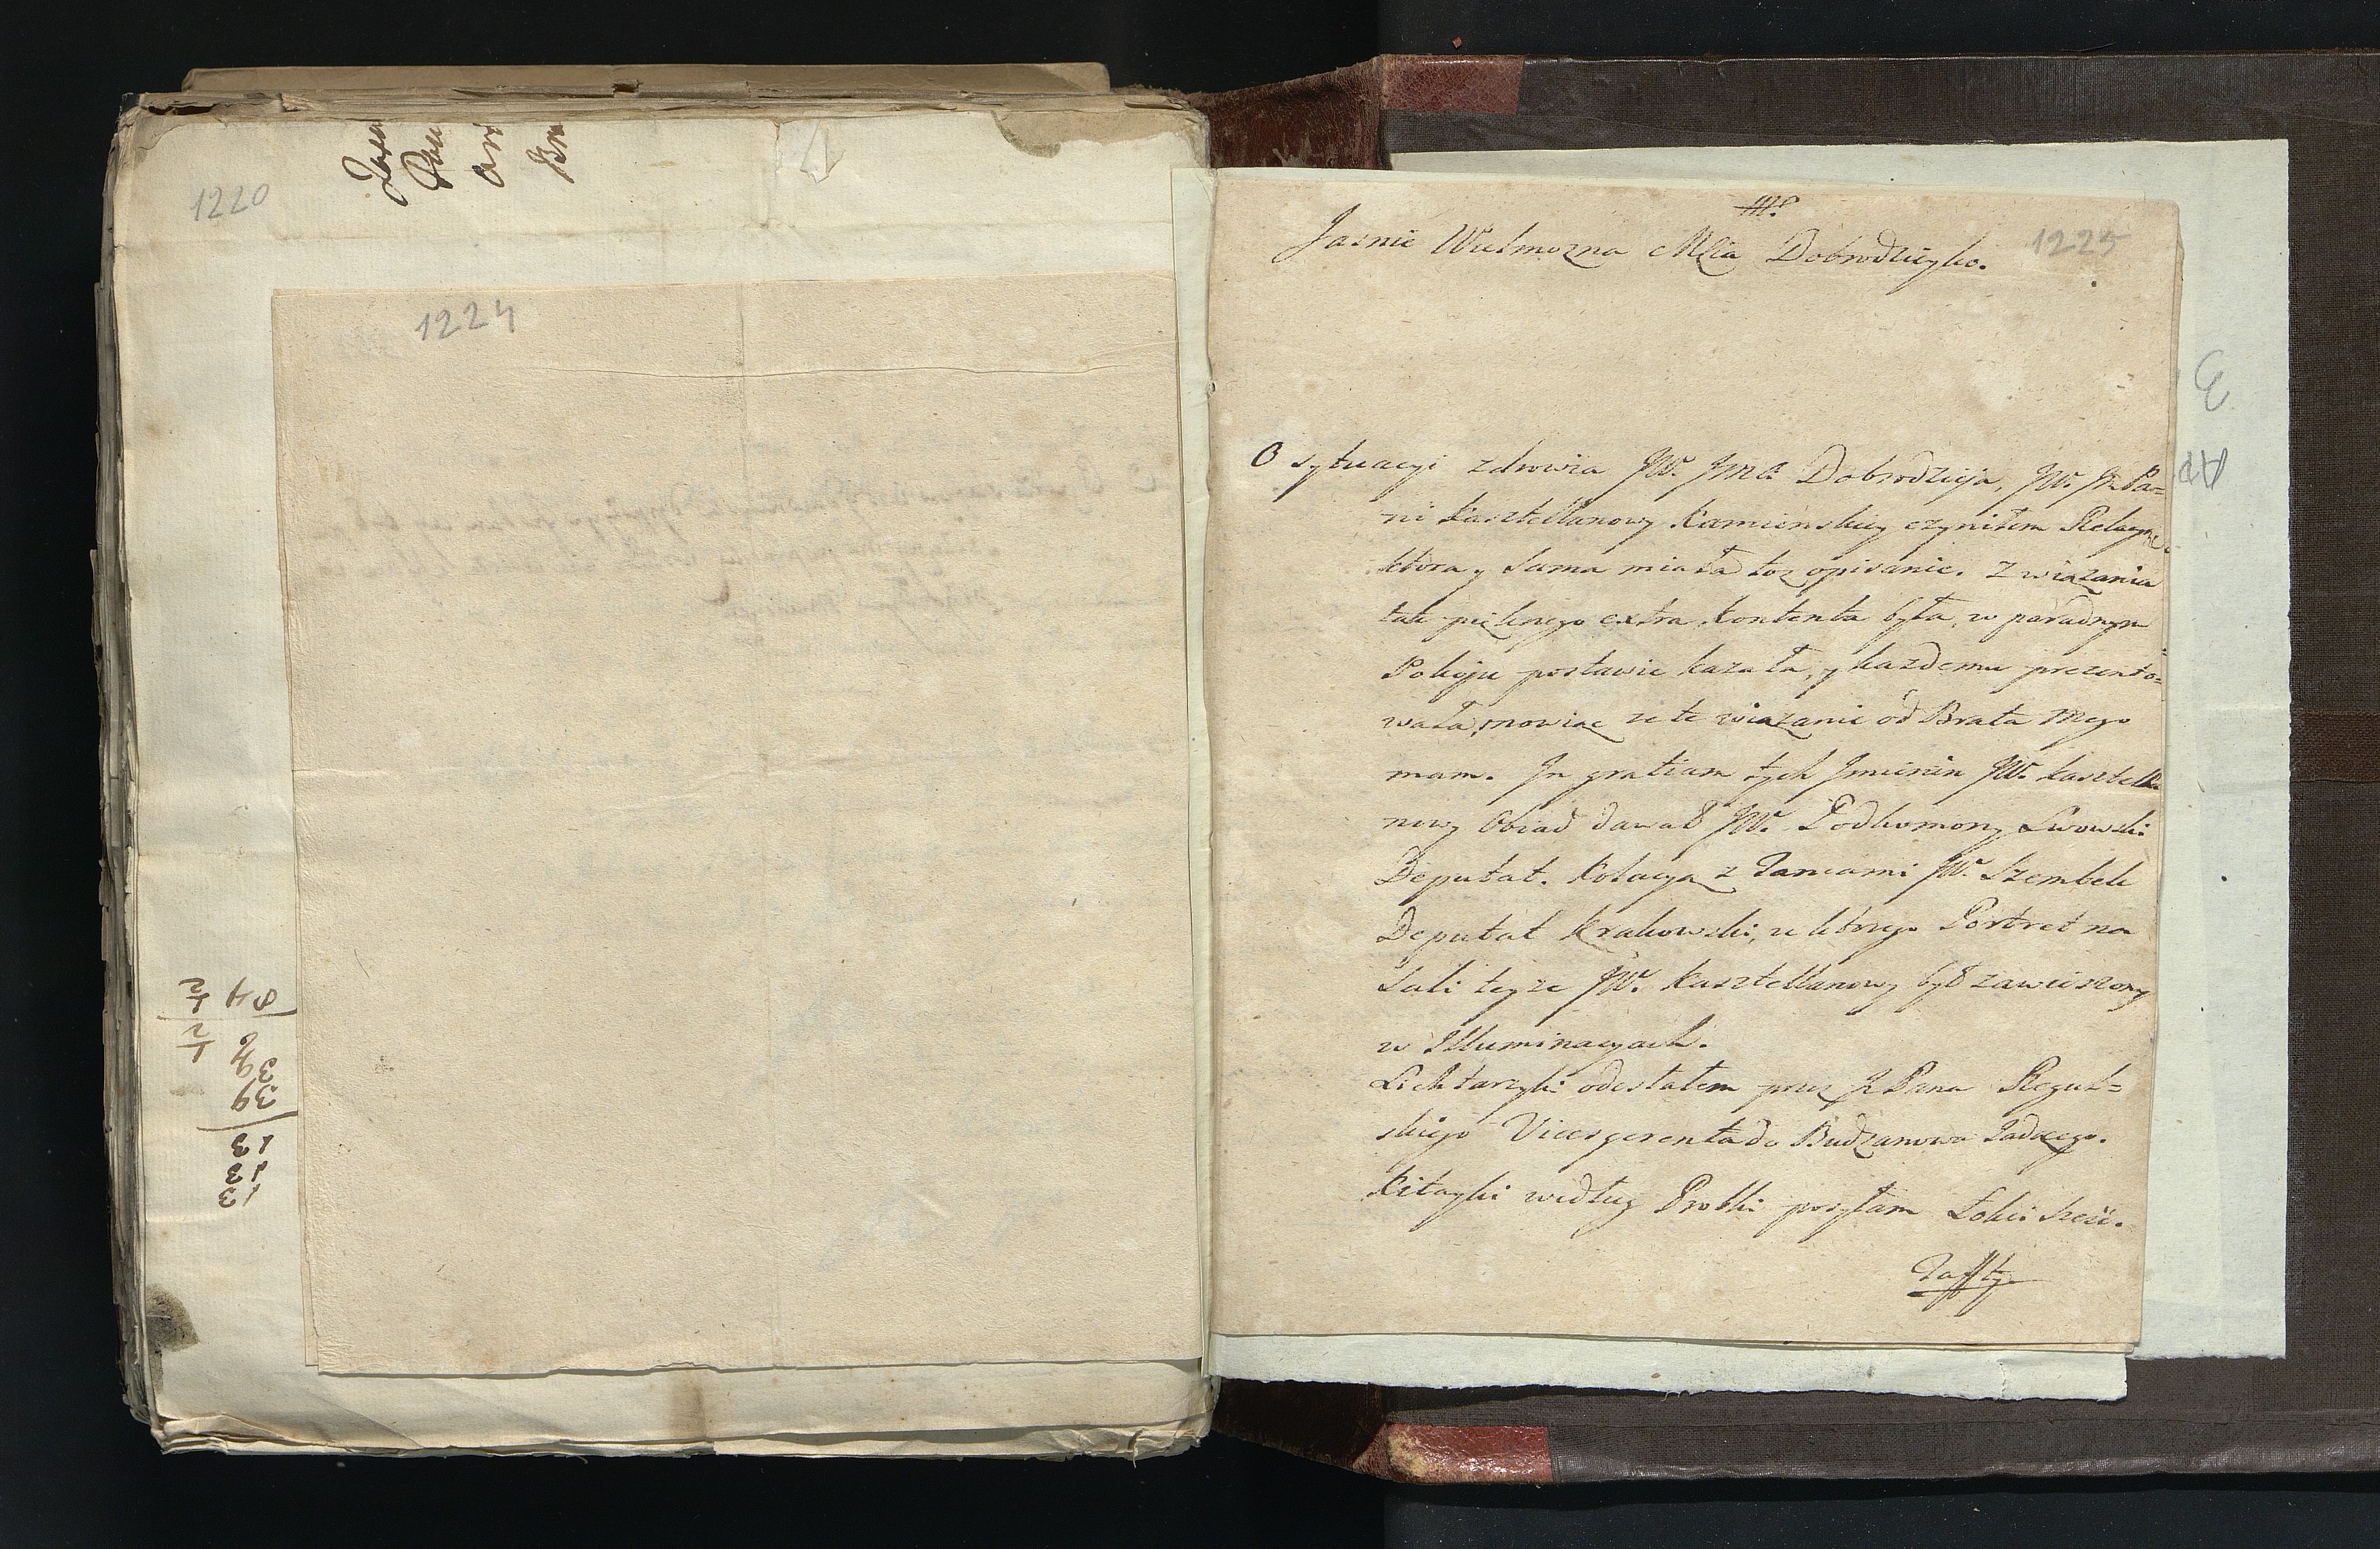 1220
1224
8 4 1/2
2 1/2
39
39
13
13
13
1225
Jasnie Wielmozna Mścia Dobrodzieyko.
O sytuacyi zdrowia JW. Jmci Dobrodzieja, JW. Jm Pa=
ni Kasztellanowy Kamienskiey czyniłem Relacyą
ktora y Sama miała toz opisanie. Z wiązania
tak pięknego extra kontenta była, w paradnym
Pokoju postawic kazała, y kazdemu prezento=
wała, mowiąc ze te wiązanie od Brata mego
mam. In gratiam tych Jmienin JW. Kasztella
nowy Obiad dawał JW. Podkomorzy Lwowski
Deputat. Kolacyą z Tancami JW. Szembek
Deputat Krakowski, u ktorego Portret na
Sali teyze JW. Kasztellanowy był zawieszony
w Illuminacyach.
Lichtarzyki odesłałem przez J Pana Regul=
skiego Vicesgerenta do Budzanowa Jadącego.
Kitayki według Probki posyłam Łokci szesc.
Taffty